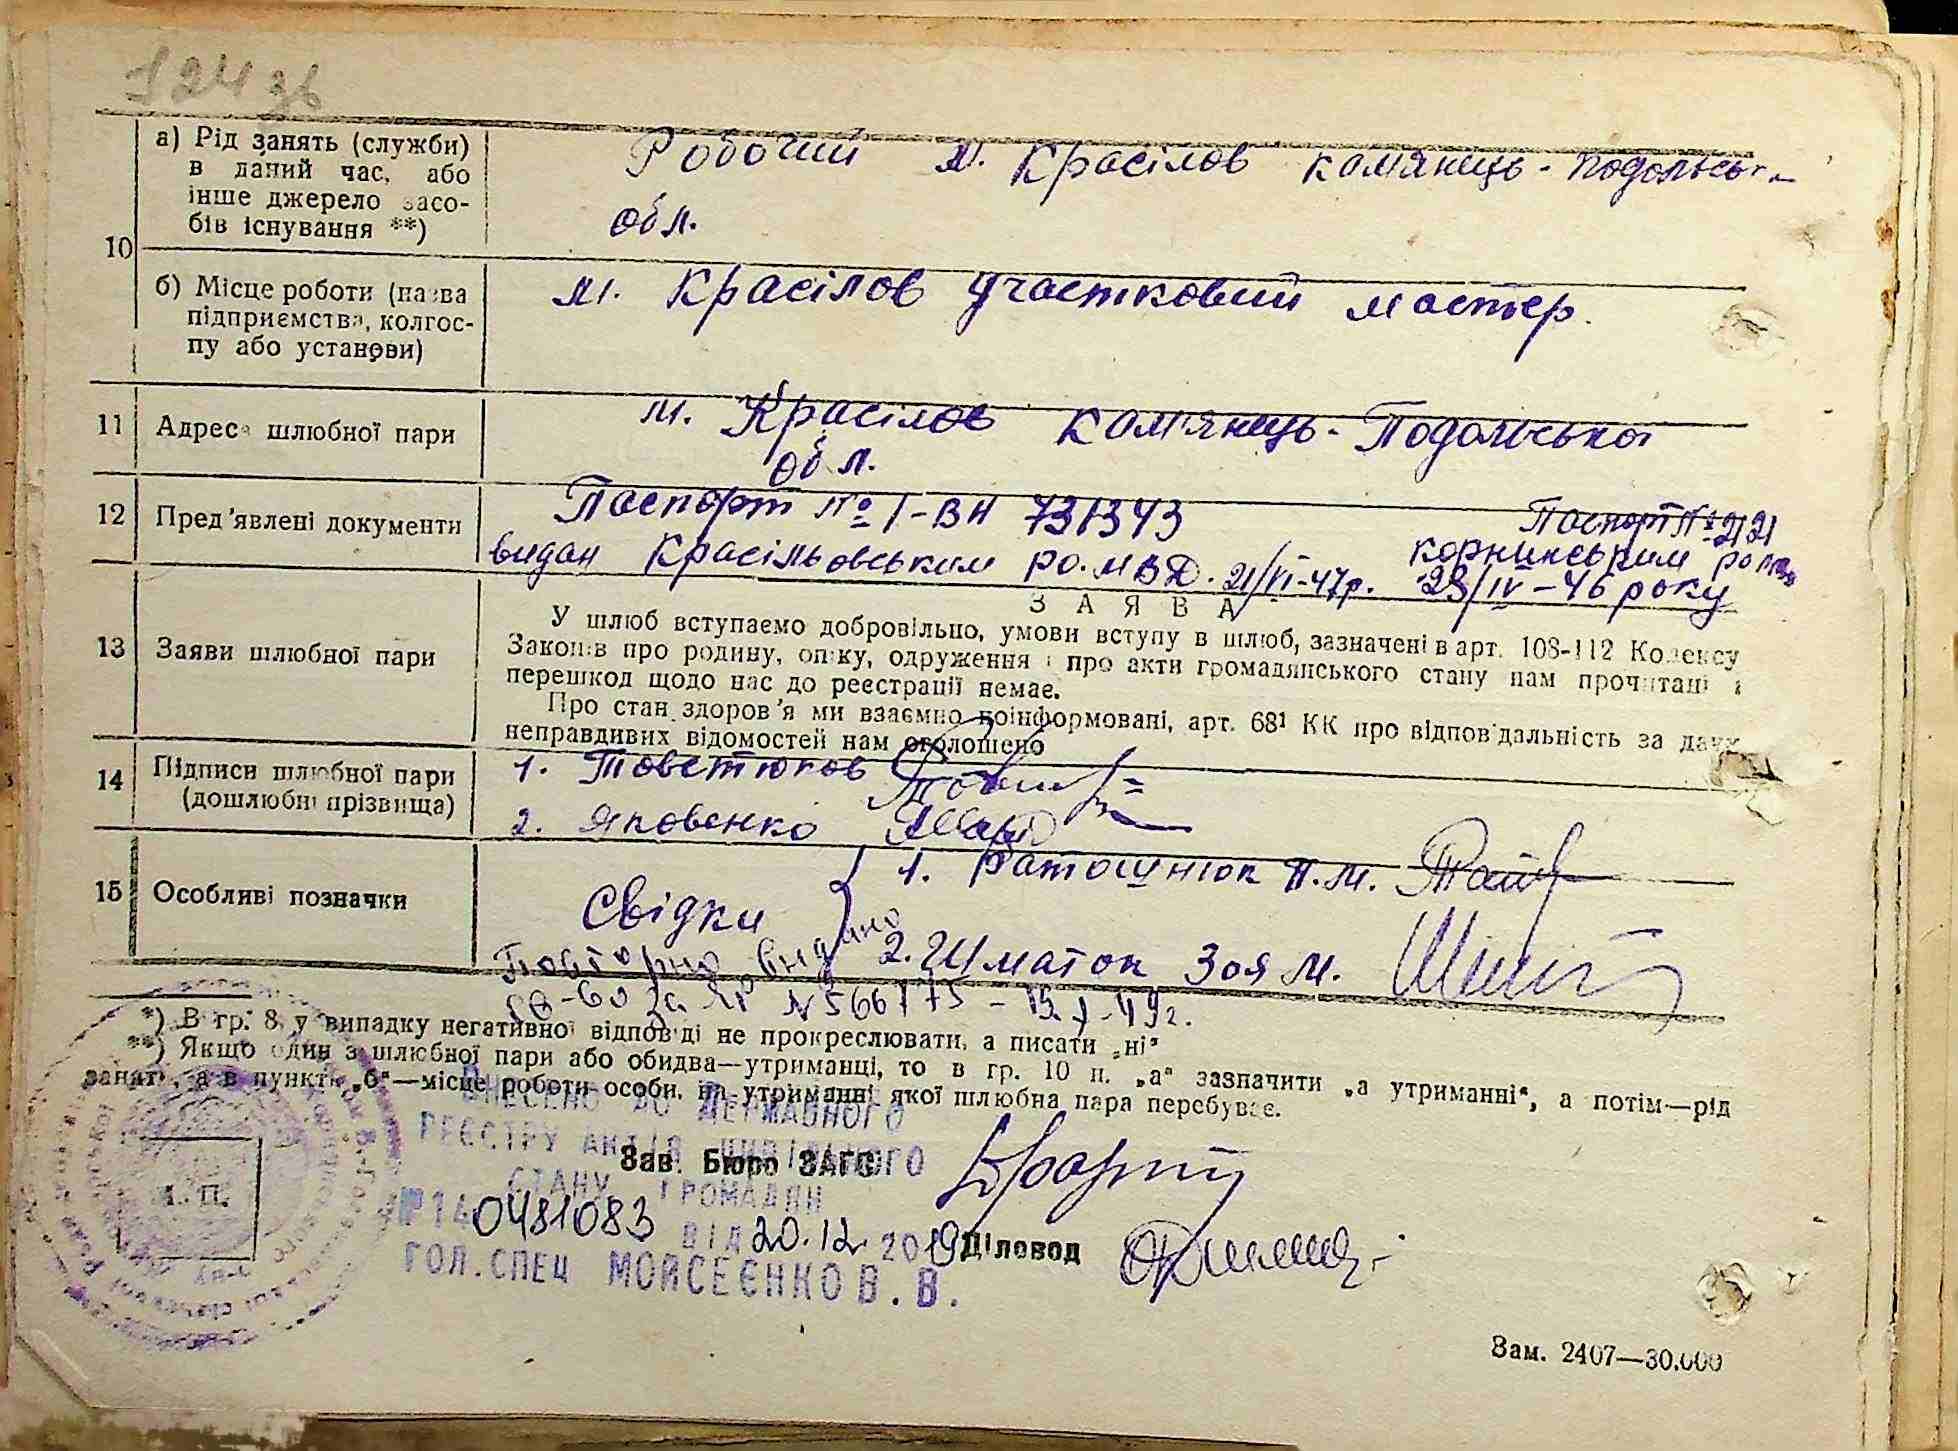 124 зв
10
а) Рід занять (служби)
в даний час, або
інше джерело засо-
бів існування **)
Робочий м. Красілов Камянець-Подольськ.
обл.
б) Місце роботи (назва
підприємства, колгос-
пу або установи)
м. Красілов участковий мастер.
11 Адреса шлюбної пари
м. Красілов Кам'янець-Подольської
обл.
12 Пред'явлені документи
Паспорт № І-ВН 731343
видан Красільовським ро. МВД. 21/VI-47р.
Паспорт №
корнинським
23/IV-46 року
13 Заяви шлюбної пари
ЗАЯВА
У шлюб вступаємо добровільно, умови вступу в шлюб, зазначені в арт. 108-112 Кодексу
Законів про родину, опіку, одруження і про акти громадянського стану нам прочитані і
перешкод щодо нас до реєстрації немає.
Про стан здоров'я ми взаємно поінформовані, арт. 68¹ КК про відповідальність за дачу
неправдивих відомостей нам оголошено
14 Підписи шлюбної пари
(дошлюбні прізвища)
1. Товстюков
2. Яковенко
15 Особливі позначки
Свідки
1. Ратошнюк П.М.
2. Шматок Зоя М.
Повторно видано
св-во за № 566175 - 15.I-49г.
*) В гр. 8, у випадку негативної відповіді не прокреслювати, а писати „ні"
**) Якщо один з шлюбної пари або обидва—утриманці, то в гр. 10 п. „а" зазначити „а утриманні", а потім—рід
занять, а в пункті „б"—місце роботи особи, на утриманні якої шлюбна пара перебуває.
ВНЕСЕНО ДО ДЕРЖАВНОГО
РЕЄСТРУ АКТІВ ЦИВІЛЬНОГО
СТАНУ ГРОМАДЯН
№ 140481083 ВІД 20.12.2019
ГОЛ.СПЕЦ МОЙСЕЄНКО В.В.
Зав. Бюро ЗАГС
Діловод
М. П.
Зам. 2407—30.000